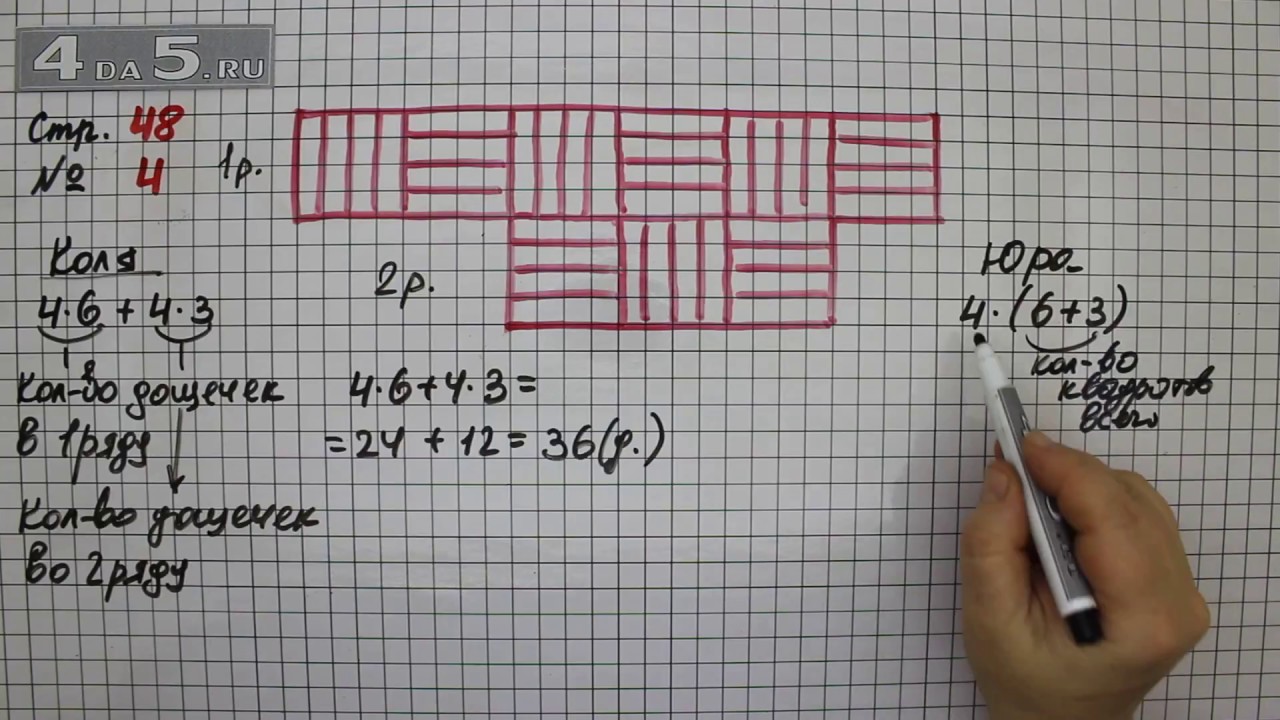 4DA5.RU
Стр. 48
№ 4
1р.
2р.
Коля
4·6 + 4·3
Кол-во дощечек
в 1 ряду
Кол-во дощечек
во 2 ряду
4·6+4·3=
=24 + 12= 36(д.)
Юра
4·(6+3)
кол-во
квадратов
всего